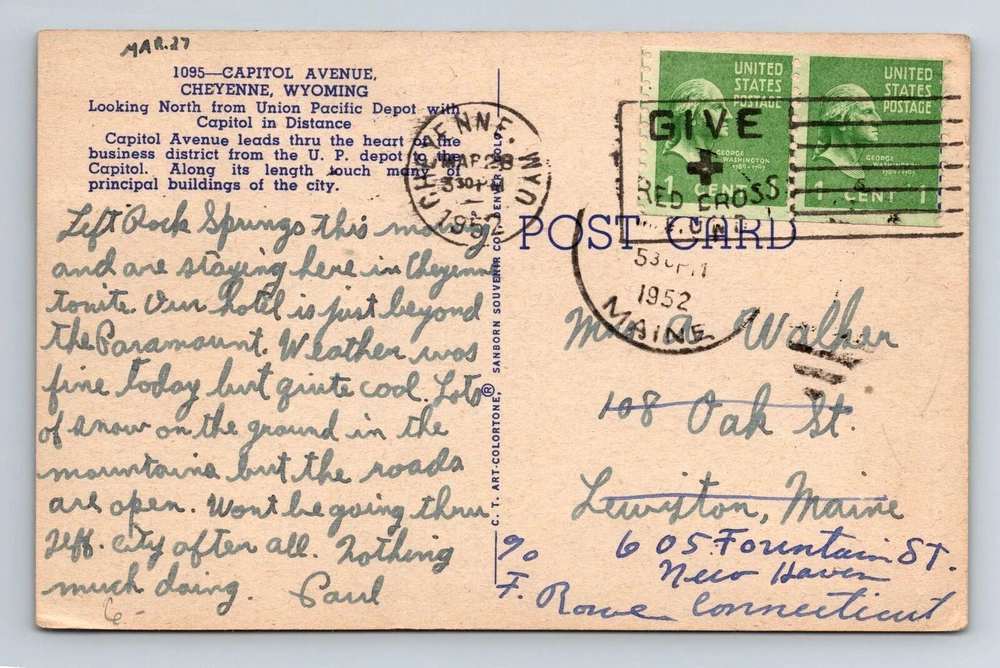 MAR.27
1095—CAPITOL AVENUE,
CHEYENNE, WYOMING
Looking North from Union Pacific Depot with
Capitol in Distance
Capitol Avenue leads thru the heart of the
business district from the U. P. depot to the
Capitol. Along its length touch many of
principal buildings of the city.
Left Rock Springs this morning
and are staying here in Cheyenne
tonite. Our hotel is just beyond
the Paramount. Weather was
fine today but quite cool. Lots
of snow on the ground in the
mountains but the roads
are open. Wont be going thru
Jeff. City after all. Nothing
much doing. Paul
6-
C. T. ART-COLORTONE, ® SANBORN SOUVENIR CO., DENVER, COLO.
CHEYENNE, WYO
MAR 28
3 30 PM
1952
UNITED
STATES
POSTAGE
GEORGE
WASHINGTON
1789-1797
1 CENT 1
UNITED
STATES
POSTAGE
GEORGE
WASHINGTON
1789-1797
1 CENT 1
GIVE
RED CROSS
FUND
POST CARD
5 30 PM
1952
MAINE
Walker
108 Oak St.
Lewiston, Maine
605 Fountain ST.
New Haven
Connecticut
%
F. Rowe